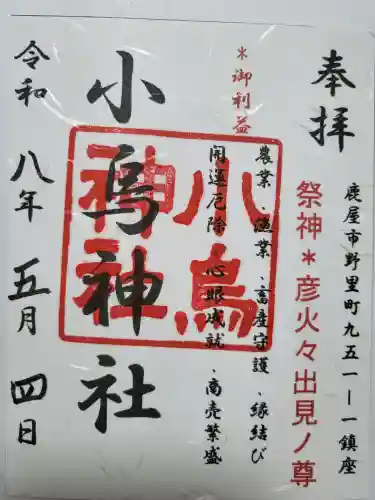 奉拝
鹿屋市野里町九五一ー一鎮座
祭神＊彦火々出見ノ尊
＊御利益
農業、漁業、畜産守護、縁結び
開運厄除、心眼成就、商売繁盛
小烏神社
小烏神社
令和八年五月四日